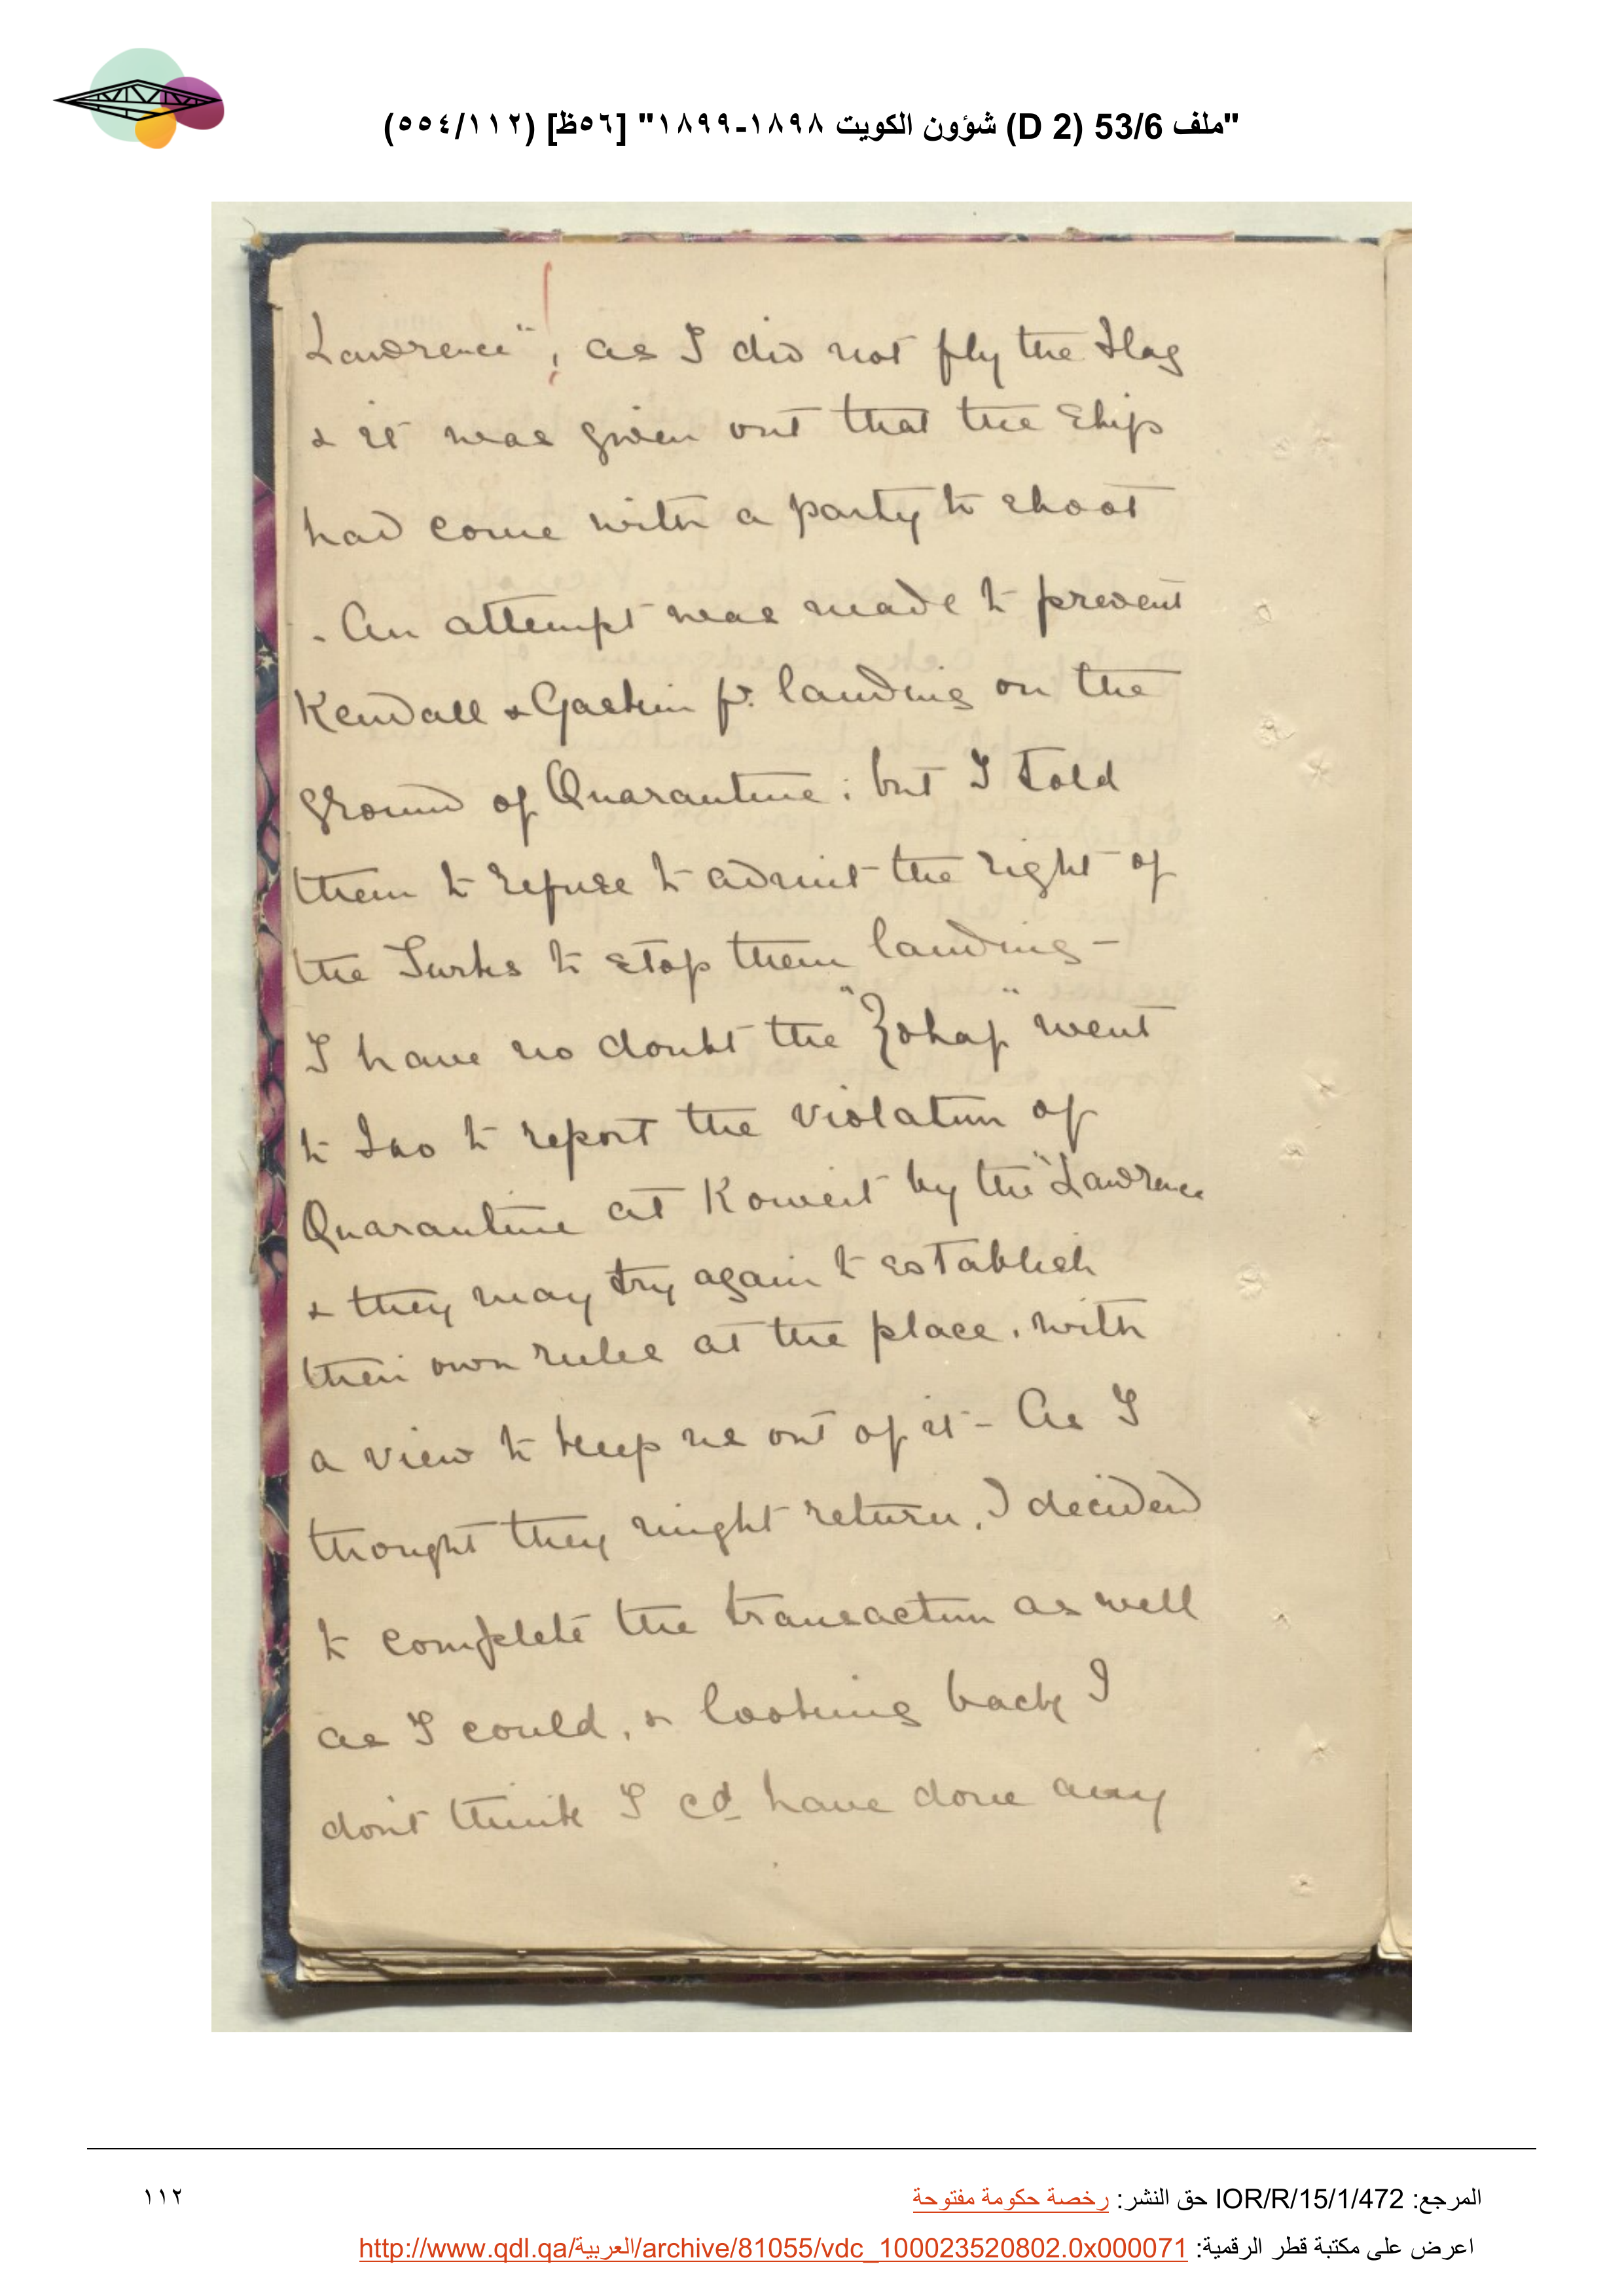 "ملف 53/6 (D 2) شؤون الكويت ١٨٩٨-١٨٩٩" [٥٦ظ] (٥٥٤/١١٢)
Lawrence", as I did not fly the Flag
& it was given out that the Ship
had come with a party to shoot
. An attempt was made to prevent
Kendall & Gaskin fr. landing on the
ground of Quarantine; but I told
them to refuse to admit the right of
the Turks to stop them landing -
I have no doubt the "Zohaf" went
to Fao to report the violation of
Quarantine at Koweit by the "Lawrence
& they may try again to establish
their own rules at the place, with
a view to keep us out of it - As I
thought they might return, I decided
to complete the transaction as well
as I could, & looking back I
don't think I cd have done any
المرجع: IOR/R/15/1/472 حق النشر: رخصة حكومة مفتوحة
١١٢
اعرض على مكتبة قطر الرقمية: http://www.qdl.qa/العربية/archive/81055/vdc_100023520802.0x000071